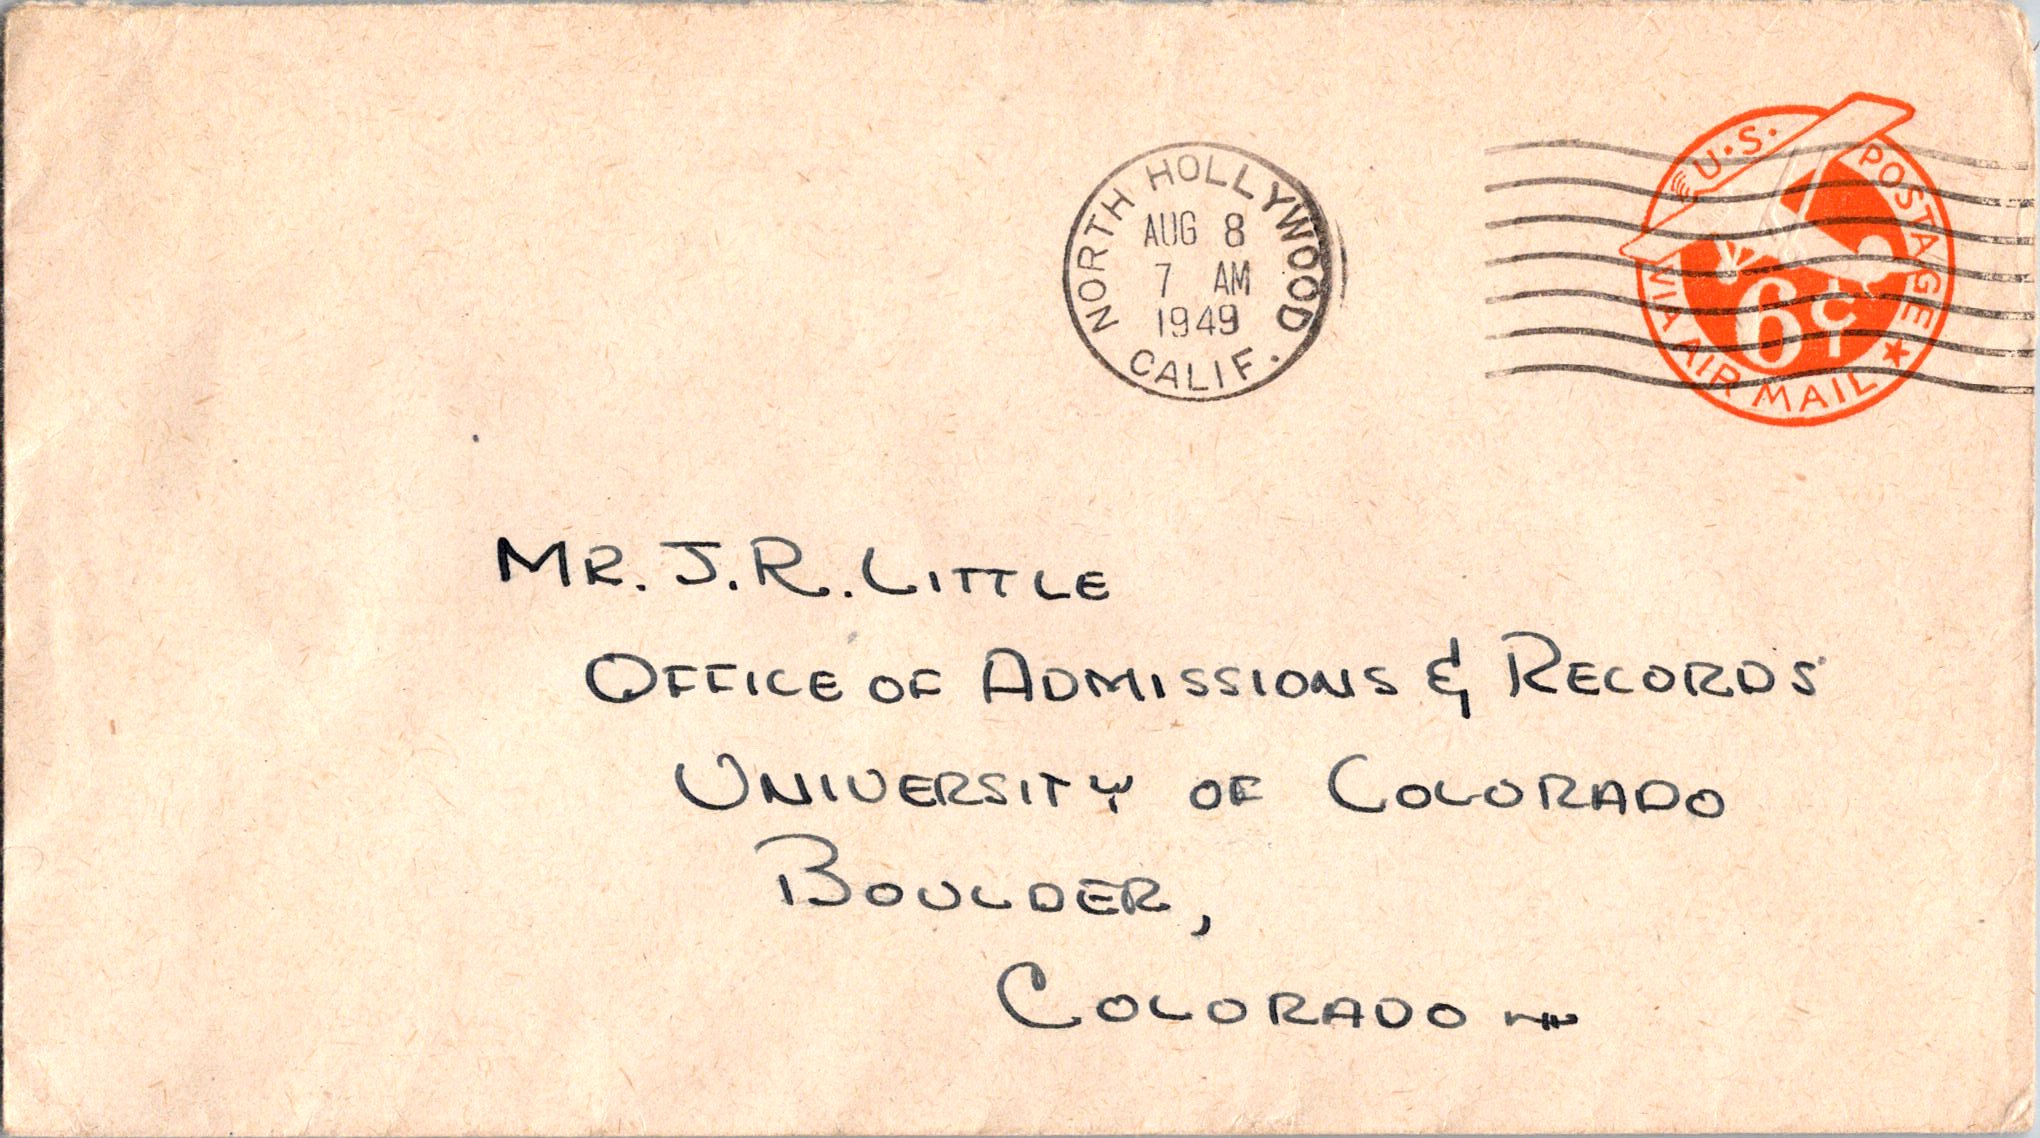 NORTH HOLLYWOOD
CALIF.
AUG 8
7 AM
1949
U.S. POSTAGE
6¢
VIA AIR MAIL
MR. J.R. LITTLE
OFFICE OF ADMISSIONS & RECORDS
UNIVERSITY OF COLORADO
BOULDER,
COLORADO